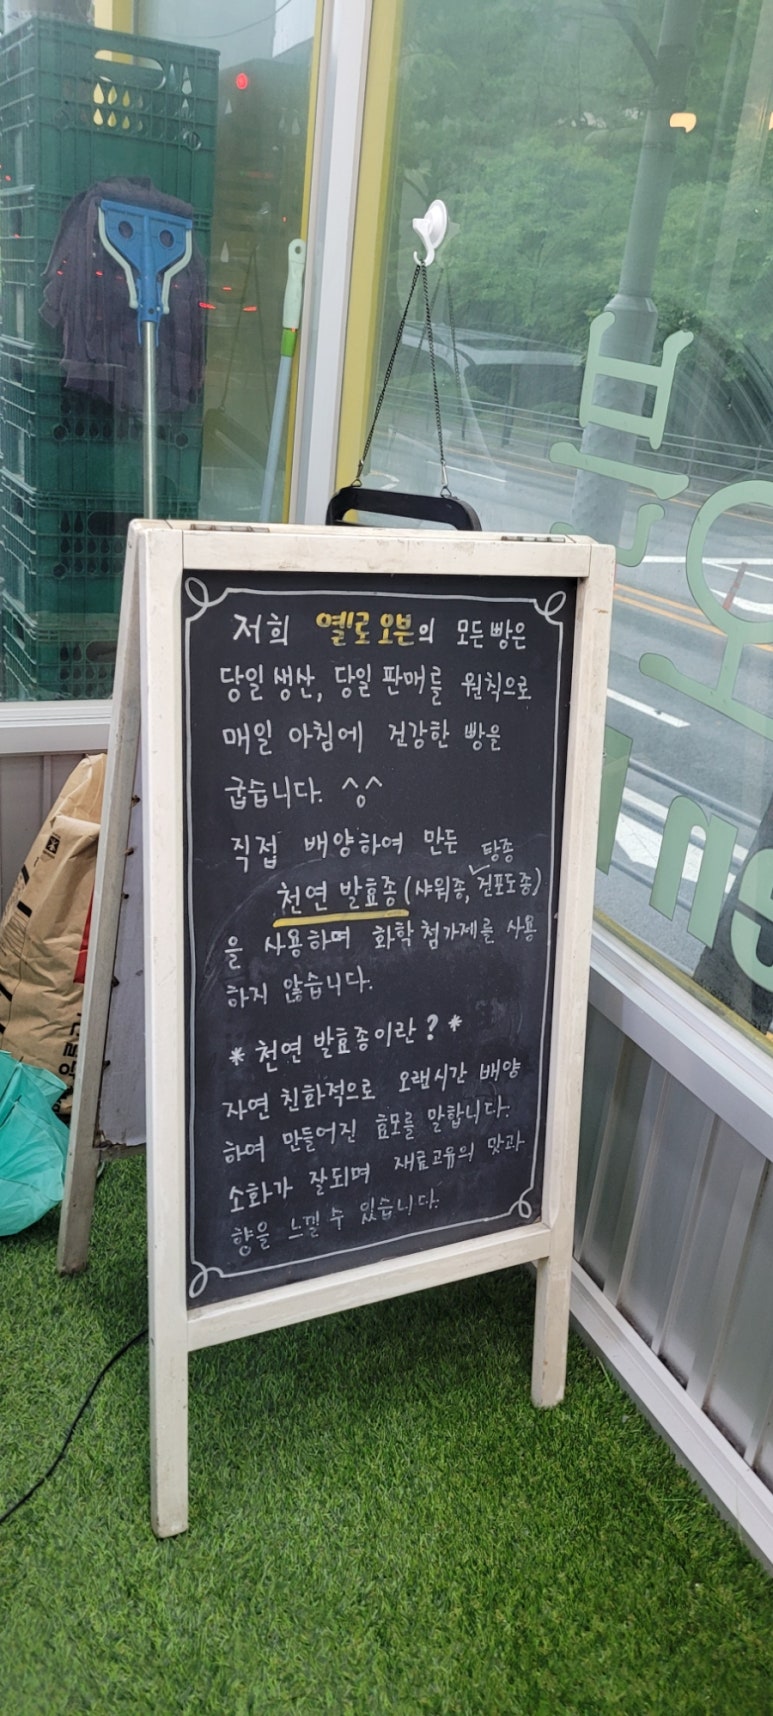 저희 옐로오븐의 모든 빵은
당일 생산, 당일 판매를 원칙으로
매일 아침에 건강한 빵을
굽습니다. ^o^
직접 배양하여 만든
천연 발효종 (샤워종, 탕종 건포도종)
을 사용하며 화학첨가제를 사용
하지 않습니다.
* 천연 발효종이란? *
자연 친화적으로 오랜시간 배양
하여 만들어진 효모를 말합니다.
소화가 잘되며 재료고유의 맛과
향을 느낄 수 있습니다.